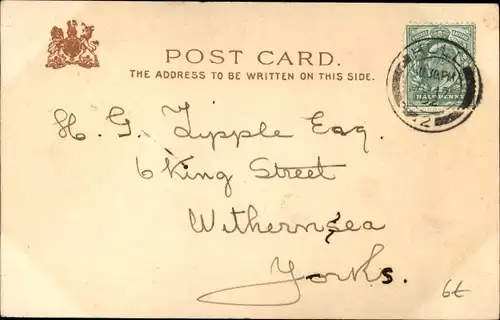 POST CARD.
THE ADDRESS TO BE WRITTEN ON THIS SIDE.
HULL
HALFPENNY
H. G. Tipple Esq.
6 King Street
Withernsea
Yorks.
6t